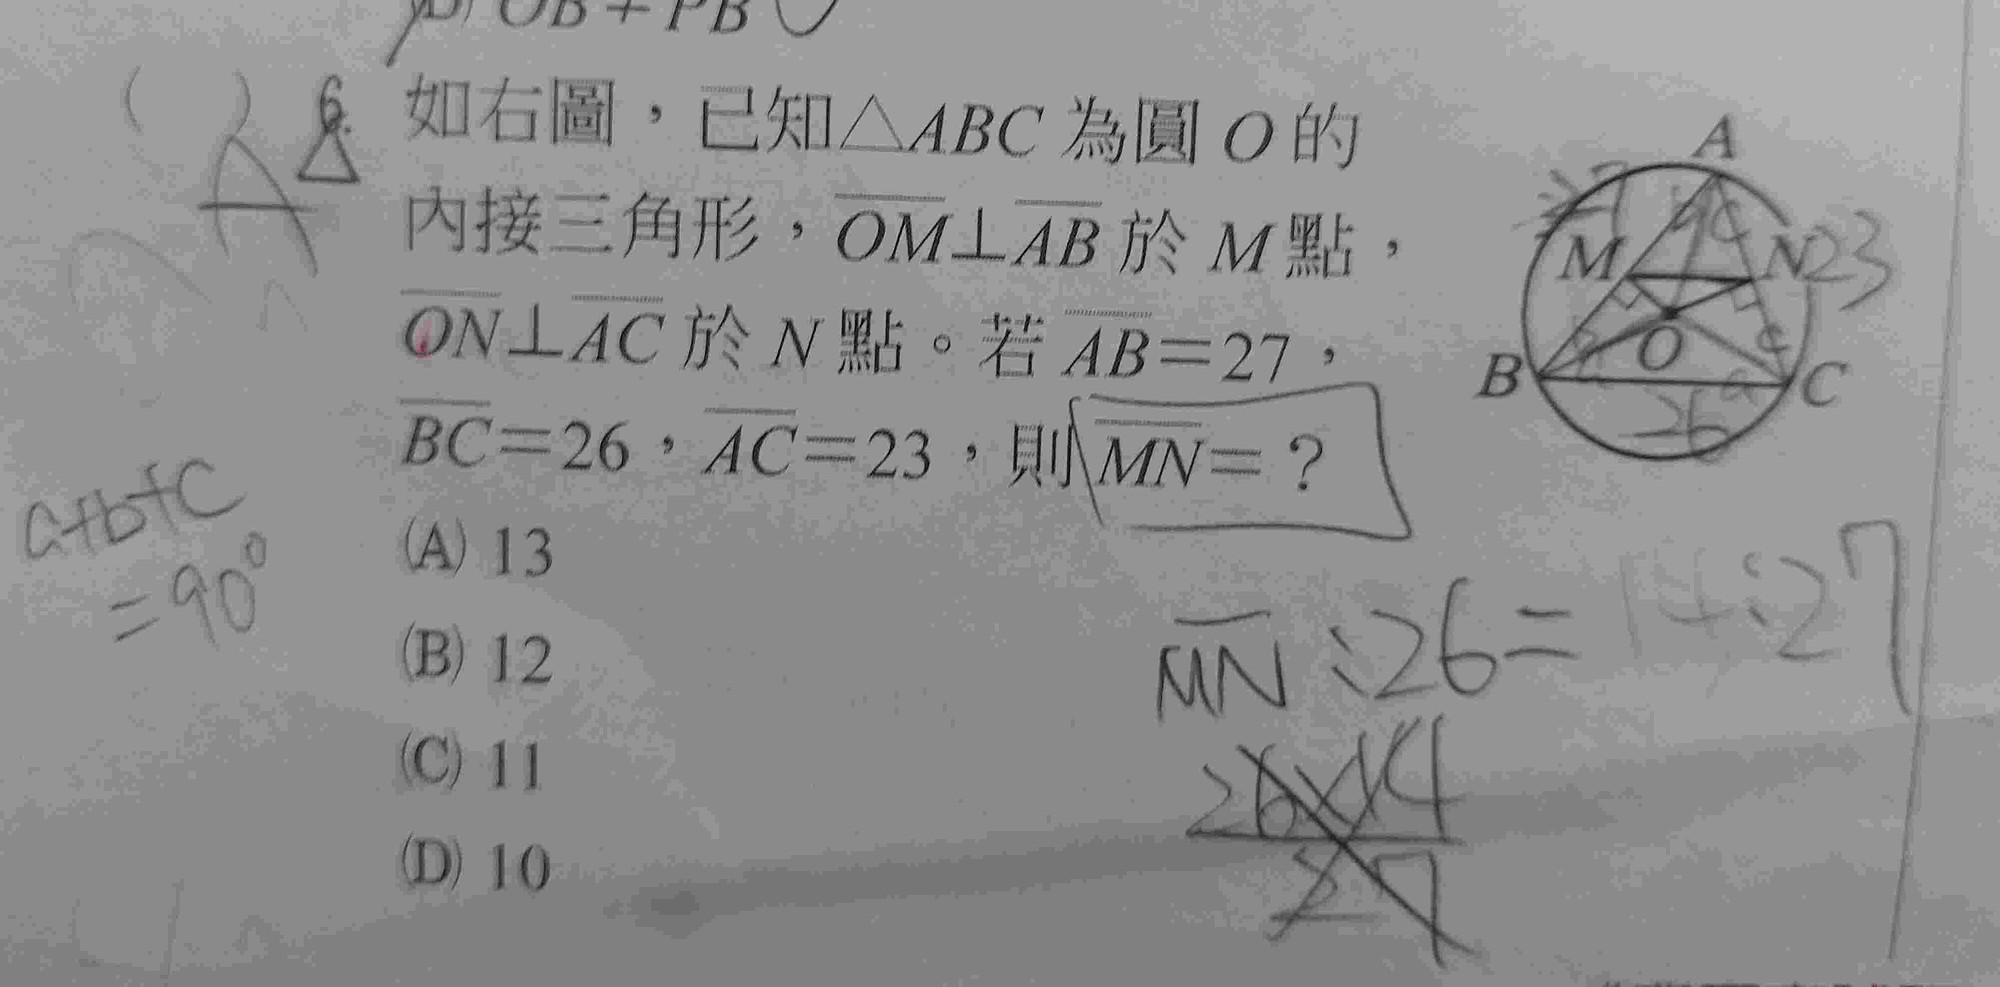 OB + PB
6. 如右圖，已知△ABC 為圓 O 的
內接三角形，OM⊥AB 於 M 點，
ON⊥AC 於 N 點。若 AB=27，
BC=26，AC=23，則 MN=？
(A) 13
(B) 12
(C) 11
(D) 10
A
M
N
23
B
O
C
26
a+b+c
=90°
MN:26=14:27
26×14
27